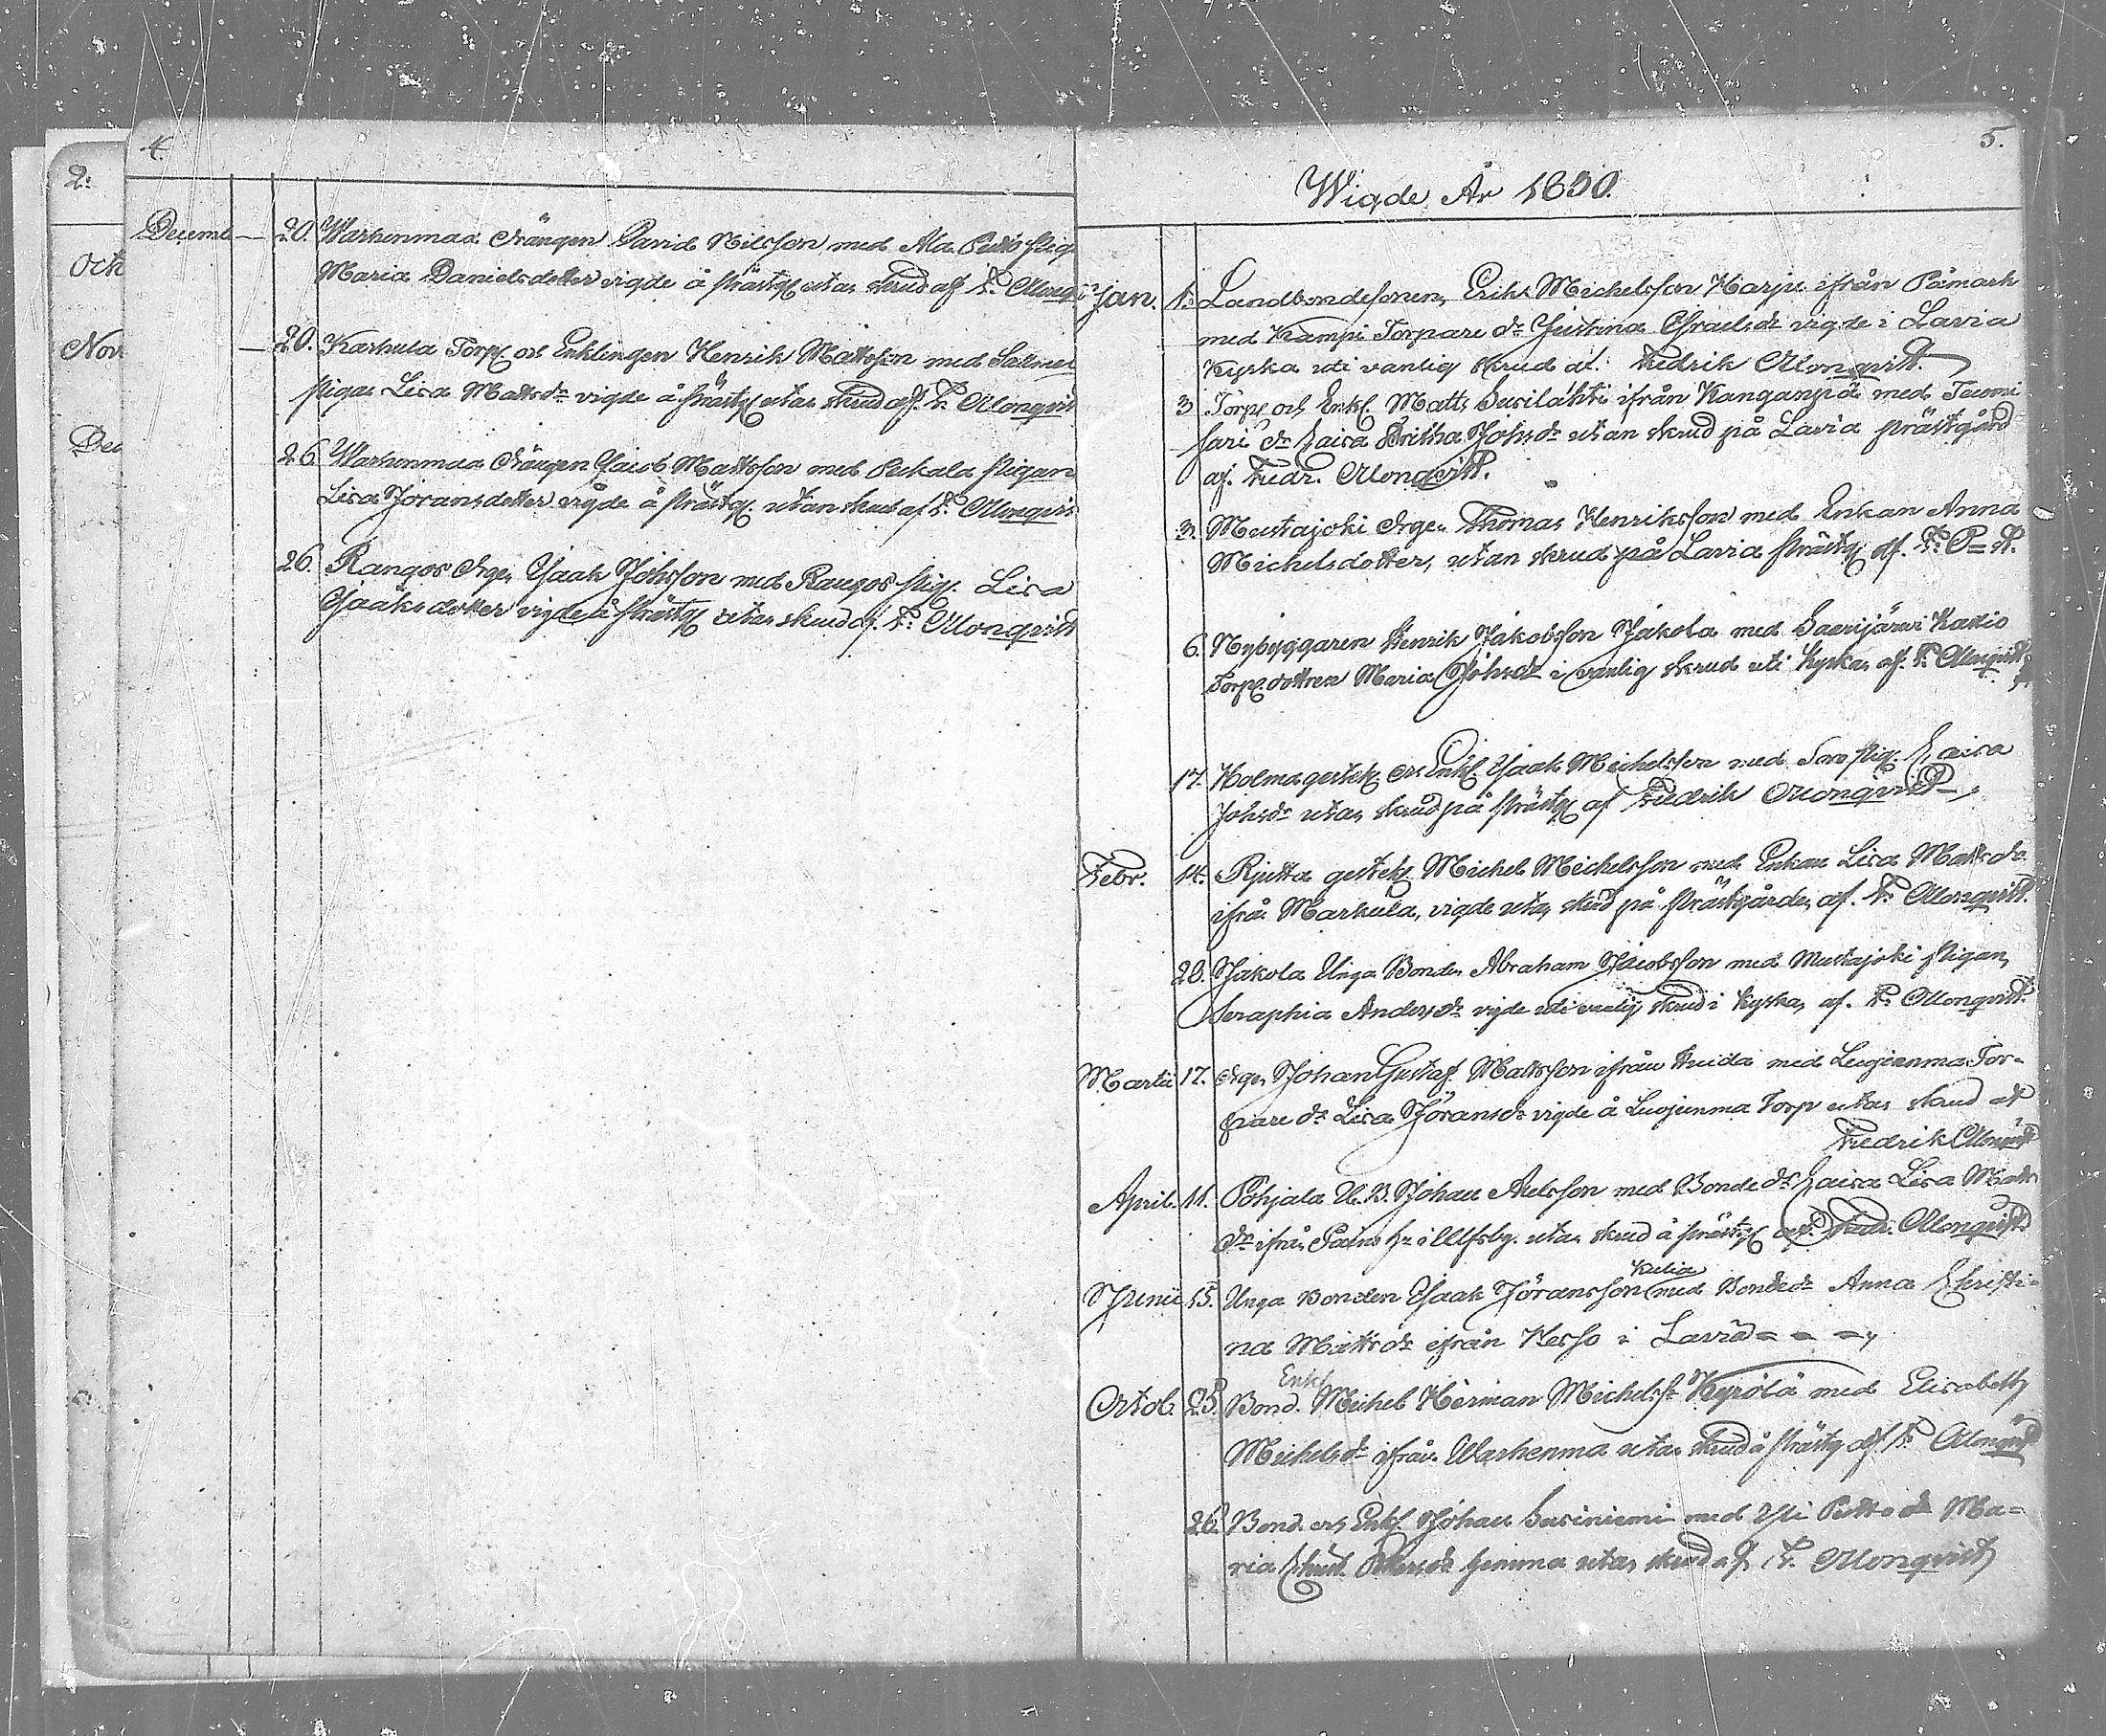 2.
Octb
Nov
Dec
4.
Decemb — 20. Warhenmaa drängen David Nilsson med Ala Pesto pig
Maria Danielsdotter vigde å prästg utan skrud af F. Almqvi
— 20. Karhula Torp och Enklingen Henrik Mattsson med Salmel
pigan Lisa Mattsdr vigde å prästg utan skrud af F. Almqvist
26 Warhenmaa drängen Jacob Mattsson med Peltala pigan
Lisa Jöransdotter vigde å prästg. utan skrud af F. Almqvist
26. Rangos dräng Isaak Johsson med Rangos pig. Lisa
Isaaksdotter vigde å prästg utan skrud af F. Almqvist
5.
Wigde År 1850.
Jan. 1. Landbondesonen, Erik Michelsson Harju ifrån Påmark
med Kampi Torpare dr Justina Israelsdr vigde i Lavia
Kyrka uti vanlig skrud af: Fredrik Almqvist.
3 Torp och Enkl. Matts Susilahti ifrån Kanganpä med Tuomi
sari dr Caisa Britha Johsdr utan skrud på Lavia prästgård
af. Fredr. Almqvist.
3. Mustajoki dräng Thomas Henriksson med Enkan Anna
Michelsdotter, utan skrud på Lavia prästg af. F.
6. Nybyggaren Henrik Jakobsson Jakola med Saarijärvi
Torp. dottren Maria Johsdr i vanlig skrud uti kyrkan af. F. Almqvist
17. Holma och Enkl. Isaak Michelsson med pig. Caisa
Johsdr utan skrud på prästg af Fredrik Almqvist
Febr. 14. Michel Michelsson med Enkan Lisa Mattsdr
ifrån Markula, vigde utan skrud på prästgården af. F. Almqvist.
28. Jakola Unga Bonden Abraham Jacobsson med Mustajoki pigan
Seraphia Andersdr vigde uti vanlig skrud i kyrkan af. F. Almqvist.
Martii 17. dräng Johan Gustaf Mattsson ifrån med Luojenma Tor-
pare dr Lisa Jöransdr vigde å Luojenma Torp utan skrud af
Fredrik Almqvist
April. 11. Pohjala U. B. Johan Axelsson med Bonde dr Caisa Lisa Matts
dr ifrån i Ulfsby. utan skrud å prästg af Fredr. Almqvist
Kulia
Junii 15. Unga Bonden Isaak Jöransson med Bondedr Anna Christi-
na Mattsdr ifrån Kesso i Lavia
Enkl
Octob. 25. Bond. Michel Herman Michelss. Kyrölä med Elisabeth
Michelsdr ifrån Warhenma utan skrud å prästg af F. Almqvist
26. Bond. och Enkl. Johan Susiniemi med Yli Pesto dr Ma-
ria Christ. hemma utan skrud af F. Almqvist